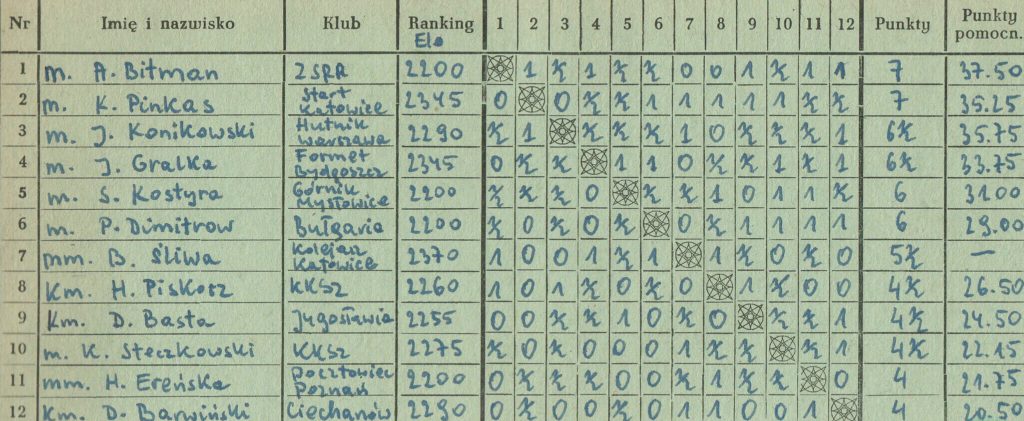 Nr Imię i nazwisko Klub Ranking Elo 1 2 3 4 5 6 7 8 9 10 11 12 Punkty Punkty pomocn.
1 m. A. Bitman ZSRR 2200 1 ½ 1 ½ ½ 0 0 1 ½ 1 1 7 37.50
2 m. K. Pinkas Start Katowice 2345 0 0 ½ ½ 1 1 1 1 1 ½ ½ 7 35.25
3 m. J. Konikowski Hutnik Warszawa 2290 ½ 1 ½ ½ ½ 1 0 ½ ½ ½ 1 6½ 35.75
4 m. J. Gralka Formet Bydgoszcz 2345 0 ½ ½ 1 1 0 ½ ½ 1 ½ 1 6½ 33.75
5 m. S. Kostyra Górnik Mysłowice 2200 ½ ½ ½ 0 ½ ½ 1 0 1 1 ½ 6 31.00
6 m. P. Dimitrow Bułgaria 2200 ½ 0 ½ 0 ½ 0 ½ 1 1 1 1 6 29.00
7 mm. B. Śliwa Kolejarz Katowice 2370 1 0 0 1 ½ 1 1 ½ 0 ½ 0 5½ —
8 Km. H. Piskosz KKSz 2260 1 0 1 ½ 0 ½ 0 1 ½ 0 0 4½ 26.50
9 Km. D. Basta Jugosławia 2255 0 0 ½ ½ 1 0 ½ 0 ½ ½ 1 4½ 24.50
10 m. K. Steczkowski KKSz 2275 ½ 0 ½ 0 0 0 1 ½ ½ ½ 1 4½ 22.15
11 mm. H. Ereńska Pocztowiec Poznań 2200 0 ½ ½ ½ 0 0 ½ 1 ½ ½ 0 4 21.75
12 Km. D. Barwiński Ciechanów 2290 0 ½ 0 0 ½ 0 1 1 0 0 1 4 20.50